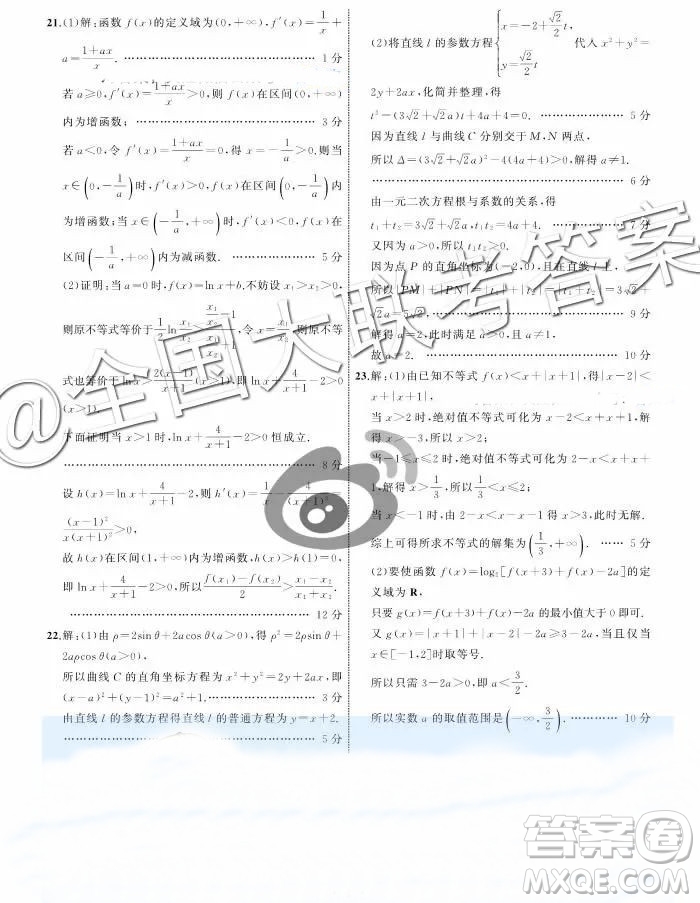 21.(1)解:函数 f(x)的定义域为(0,+∞),f′(x)=1/x+
a=(1+ax)/x. ……………………… 1分
若 a≥0,f′(x)=(1+ax)/x>0,则 f(x)在区间(0,+∞)
内为增函数; ……………………… 3分
若 a<0,令 f′(x)=(1+ax)/x=0,得 x=-1/a>0.则当
x∈(0,-1/a)时,f′(x)>0,f(x)在区间(0,-1/a)内
为增函数;当 x∈(-1/a,+∞)时,f′(x)<0,f(x)在
区间(-1/a,+∞)内为减函数. ……………… 5分
(2)证明:当 a=0时,f(x)=ln x+b.不妨设 x₁>x₂>0,
则原不等式等价于
式也等价于 ln x>2(x-1)/(x+1)
(x>1).
下面证明当 x>1时,ln x+4/(x+1)-2>0恒成立.
……………………… 8分
设 h(x)=ln x+4/(x+1)-2,则 h′(x)=1/x-4/(x+1)²=
(x-1)²/x(x+1)²>0,
故 h(x)在区间(1,+∞)内为增函数,h(x)>h(1)=0,
即 ln x+4/(x+1)-2>0,所以(f(x₁)-f(x₂))/2>(x₁-x₂)/(x₁+x₂).
……………………… 12分
22.解:(1)由 ρ=2sin θ+2acos θ(a>0),得 ρ²=2ρsin θ+
2aρcos θ(a>0),
所以曲线 C 的直角坐标方程为 x²+y²=2y+2ax,即
(x-a)²+(y-1)²=a²+1. ……………… 3分
由直线 l 的参数方程得直线 l 的普通方程为 y=x+2.
……………………… 5分
(2)将直线 l 的参数方程{x=-2+(√2/2)t, y=(√2/2)t 代入 x²+y²=
2y+2ax,化简并整理,得
t²-(3√2+√2a)t+4a+4=0. ……………… 5分
因为直线 l 与曲线 C 分别交于 M,N 两点,
所以 Δ=(3√2+√2a)²-4(4a+4)>0,解得 a≠1.
……………………… 6分
由一元二次方程根与系数的关系,得
t₁+t₂=3√2+√2a,t₁t₂=4a+4. ……… 7分
又因为 a>0,所以 t₁t₂>0.
因为点 P 的直角坐标为(-2,0),且在直线 l 上,
所以|PM|+|PN|=|t₁|+|t₂|=|t₁+t₂|=3√2+
√2a=5√2, ……………… 9分
解得 a=2,此时满足 a>0,且 a≠1,
故 a=2. ……………………… 10分
23.解:(1)由已知不等式 f(x)<x+|x+1|,得|x-2|<
x+|x+1|,
当 x>2时,绝对值不等式可化为 x-2<x+x+
当-1≤x≤2时,绝对值不等式可化为 2-x<x+x+
1,解得 x>1/3,所以1/3<x≤2;
当 x<-1时,由 2-x<x-x-1得 x>3,此时无解.
综上可得所求不等式的解集为(1/3,+∞). …… 5分
(2)要使函数 f(x)=log₂[f(x+3)+f(x)-2a]的定
义域为 R,
只要 g(x)=f(x+3)+f(x)-2a 的最小值大于 0即可.
又 g(x)=|x+1|+|x-2|-2a≥3-2a,当且仅当
x∈[-1,2]时取等号.
所以只需 3-2a>0,即 a<3/2.
所以实数 a 的取值范围是(-∞,3/2). ………… 10分
@全国大联考答案
答案卷
WWW.MXQE.COM